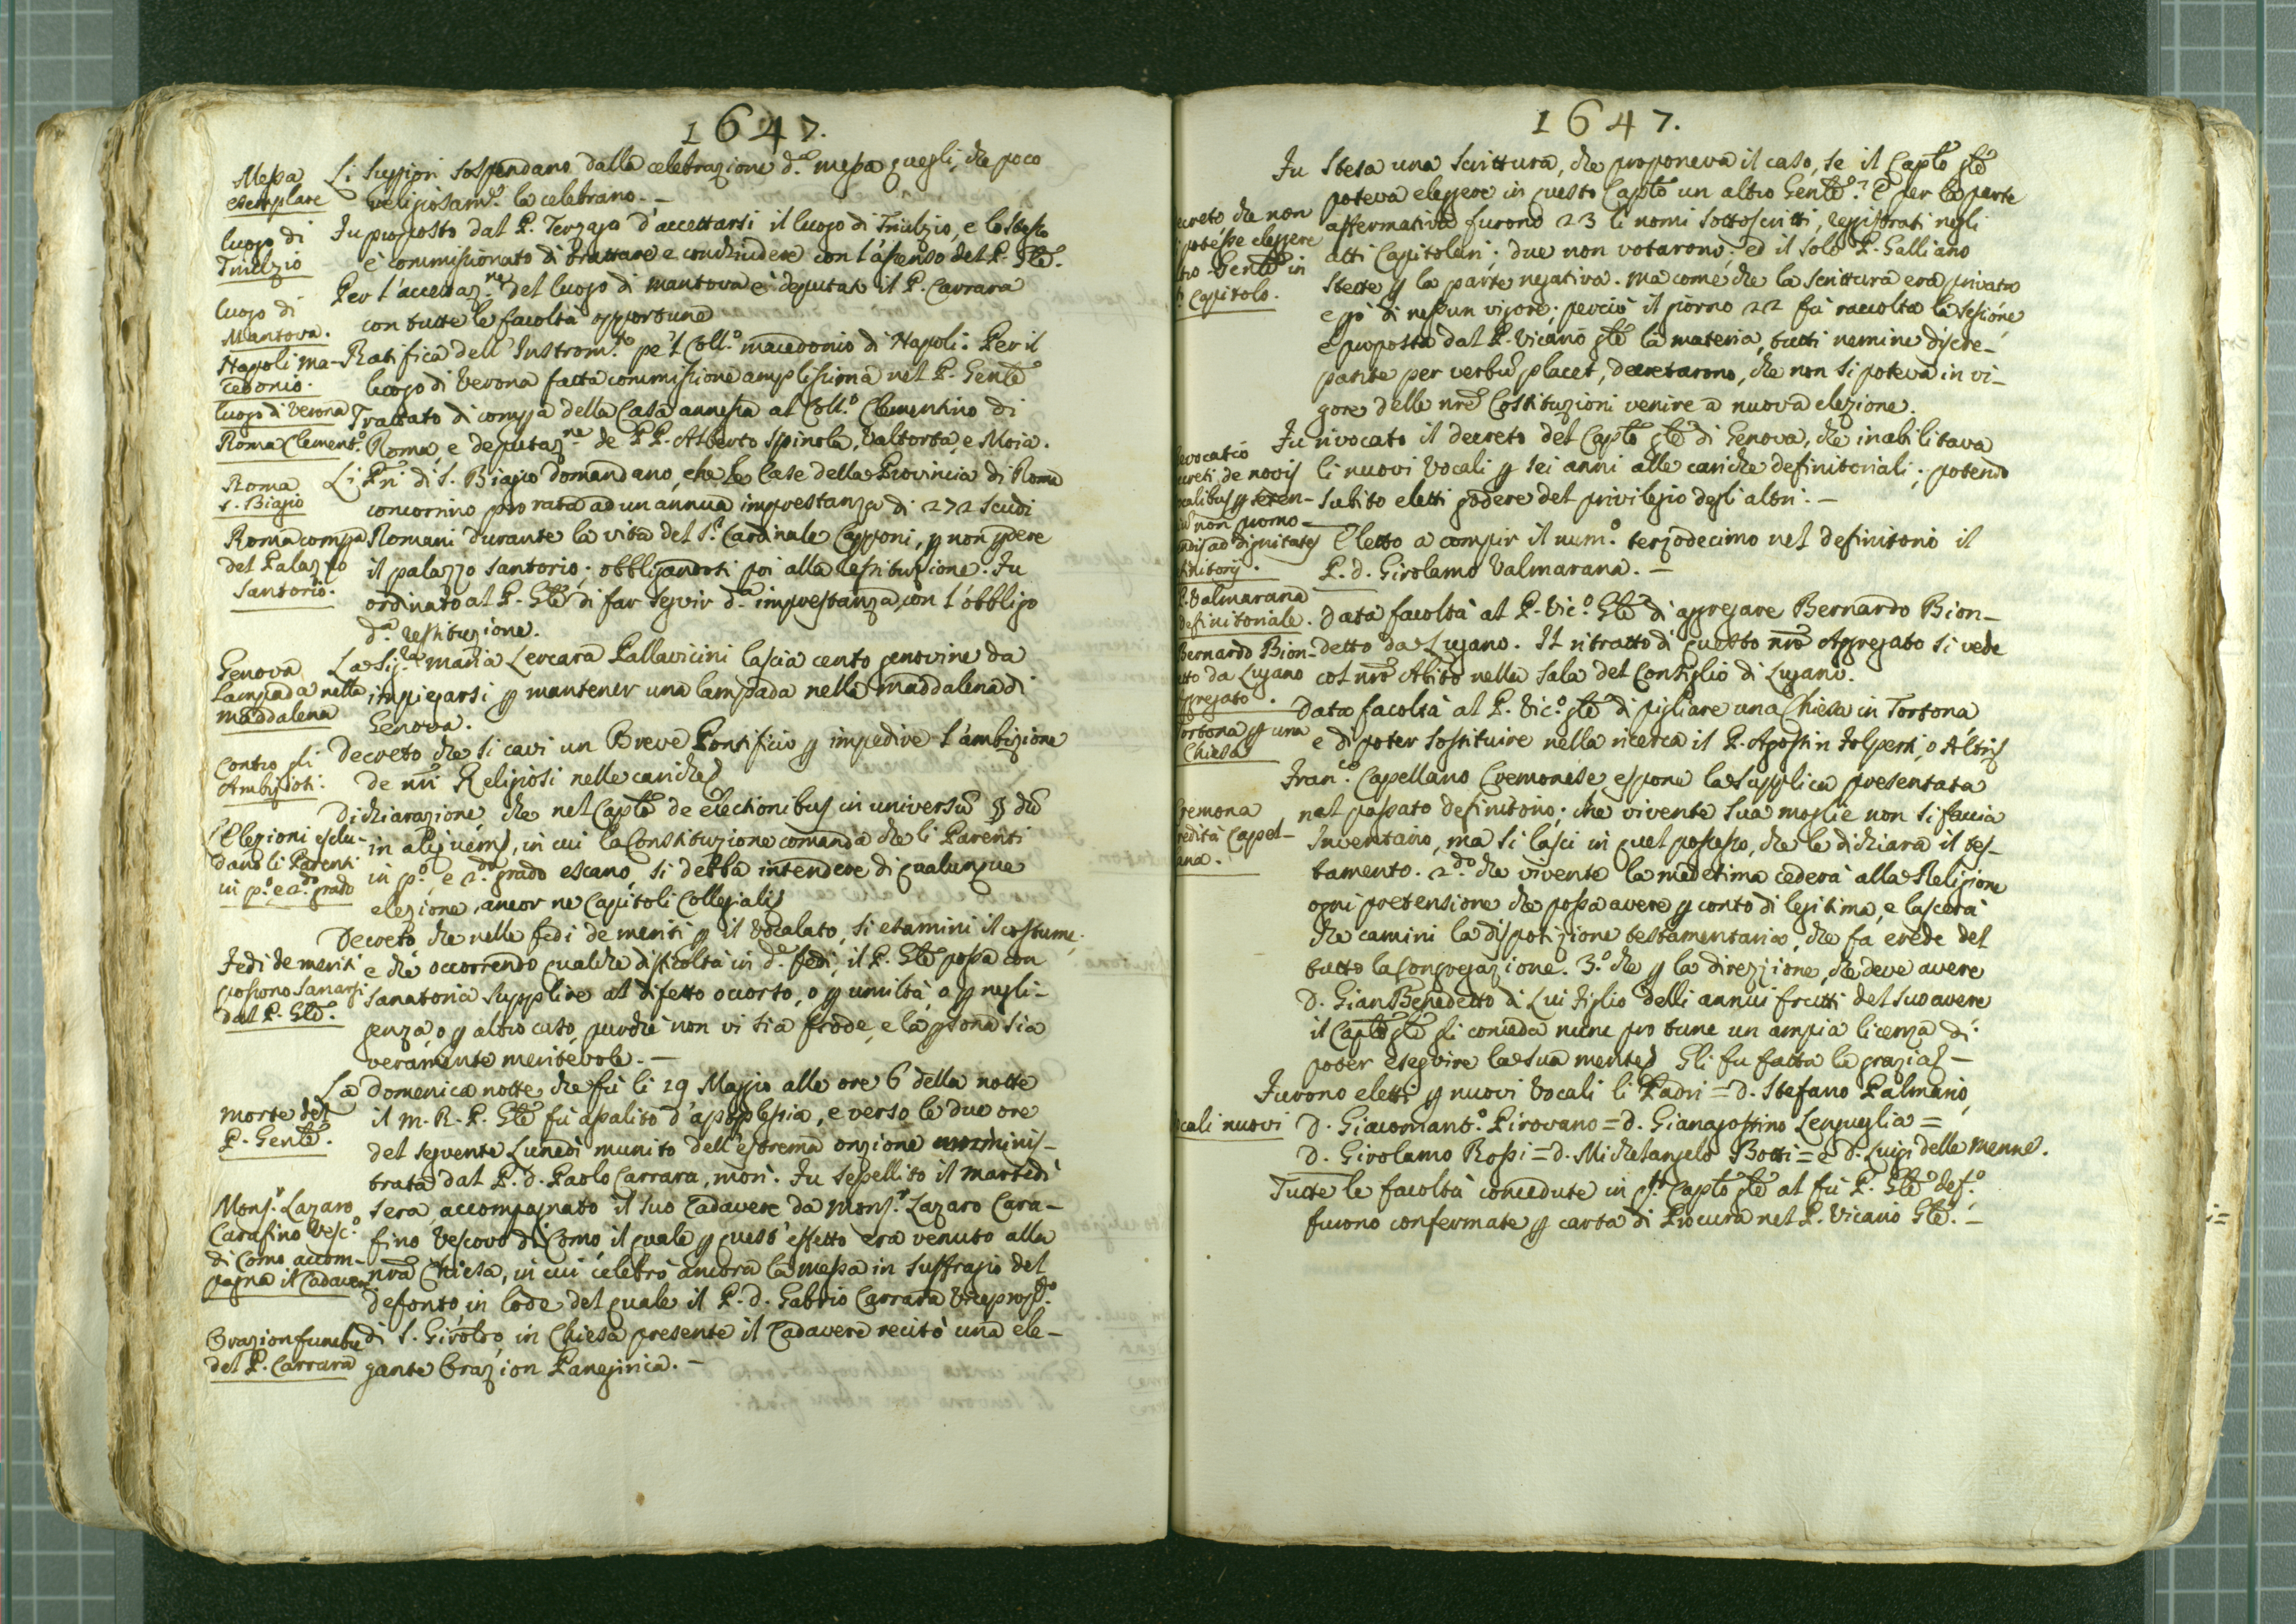 1647.
Messa
esemplare
Li Supp.ri sospendano dalla celebrazione d.a messa quegli, che poco
religiosam.te la celebrano. —
luogo di
Triulzio
Fu proposto dal P. Terzago d'accettarsi il luogo di Triulzio, e lo stesso
è commissionato di trattare e conchiudere con l'assenso del P. Gle.
luogo di
Mantova.
Per l'accettaz.ne del luogo di Mantova è deputato il P. Carrara
con tutte le facoltà opportune
Napoli Ma-
cedonio.
Ratifica dell'Instrom.to pe 'l Coll.o Macedonio di Napoli. Per il
luogo di Verona
luogo di Verona fatta commissione amplissima nel P. Genle
Roma Clement.o
Trattato di compra della Casa annessa al Coll.o Clementino di
Roma, e deputaz.ne de PP. Alberto Spinola, Valtorta, e Moia.
Roma
S. Biagio
Li Pri di S. Biagio domandano, che le Case della Provincia di Roma
concorrino pro rata ad un annua imprestanza di 272 scudi
Roma compra
del Palazzo
Santorio.
Romani durante la vita del S.r Cardinale Capponi, p non pdere
il palazzo Santorio; obbligandosi poi alla restituzione. Fu
ordinato al P. Gle di far seguir d.a imprestanza, con l'obbligo
d.a restituzione.
Genova
Lampada nella
Maddalena
La Sig.ra Maria Lercara Pallavicini lascia cento genovine da
impiegarsi p mantener una lampada nella Maddalena di
Genova.
Contro gli
Ambiziosi.
Decreto che si cavi un Breve Pontificio p impedire l'ambizione
de nri Religiosi nelle cariche
Elezioni esclu-
dano li Parenti
in p.o, e 2.do grado
Dichiarazione, che nel Caplo de electionibus in universu §
in aliquem, in cui la Constituzione comanda che li Parenti
in p.o, e 2.o grado escano, si debba intendere di qualunque
elezione, ancor ne Capitoli Collegiali
Fedi de meriti
possono sanarsi
dal P. Gle.
Decreto che nelle fedi de meriti p il Vocalato, si esamini il costume;
e che occorrendo qualche difficoltà in d.e fedi, il P. Gle possa con
sanatoria supplire al difetto occorso, o p umiltà, o p negli-
genza, o p altro caso, purche non vi sia frode, e la psona sia
veramente meritevole. —
Morte del
P. Genle.
La domenica notte che fù li 19 Maggio alle ore 6 della notte
il M. R. P. Gle fù assalito d'apoplessia, e verso le due ore
del seguente Lunedì munito dell'estrema onzione amminis-
trata dal P. D. Paolo Carrara, morì. Fu sepellito il martedì
Mons.r Lazaro
Carafino Vesc.o
di Como accom-
pagna il Cadavere
sera, accompagnato il suo Cadavere da Mons.r Lazaro Cara-
fino Vescovo di Como, il quale p quest'effetto era venuto alla
nra Chiesa, in cui celebrò ancora la messa in suffragio del
defonto, in lode del quale il P. D. Gabrio Carrara Viceprop.to
Orazion funebre
del P. Carrara
di S. Girolo, in Chiesa presente il Cadavere recitò una ele-
gante Orazion Panegirica. —
1647.
Fu stesa una scrittura, che proponeva il caso, se il Caplo gle
ecreto che non
potesse eleggere
tro Genle in
Capitolo.
poteva eleggere in questo Caplo un altro Genle? E per la parte
affermativa furono 23 li nomi sottoscritti, registrati negli
atti Capitolari; due non votarono; ed il solo P. Galliano
stette p la parte negativa. Ma come che la scrittura era privata
e pciò di nessun vigore; perciò il giorno 22 fù raccolta la sessione,
e proposta dal P. Vicario gle la materia, tutti nemine discre-
pante per verbu placet, decretarono, che non si poteva in vi-
gore delle nre Costituzioni venire a nuova elezione.
evocatio
ecreti de novis
ocalibus p sexen-
non promo-
endis ad dignitates
finitorij.
Fu rivocato il decreto del Caplo gle di Genova, che inabilitava
li nuovi Vocali p sei anni alle cariche definitoriali; potendo
subito eletti godere del privilegio degli altri. —
P. Valmarana
definitoriale.
Eletto a compir il num.o terzodecimo nel definitorio il
P. D. Girolamo Valmarana. —
Bernardo Bion-
etto da Lugano
ggregato.
Data facoltà al P. Vic.o Gle di aggregare Bernardo Bion-
detto da Lugano. Il ritratto di questo nro Aggregato si vede
col nro Abito nella sala del Consiglio di Lugano.
ortona p una
Chiesa
Data facoltà al P. Vic.o gle di pigliare una Chiesa in Tortona
e di poter sostituire nella ricerca il P. Agostin Folperti, o Altri
remona
redità Capel-
ana.
Fran.co Capellano Cremonese espone la supplica presentata
nel passato definitorio; che vivente sua moglie non si faccia
Inventario, ma si lasci in quel possesso, che le dichiara il tes-
tamento. 2.do che vivente la medesima cederà alla Religione
ogni pretensione che possa avere p conto di legitima, e lascerà
che camini la disposizione testamentaria, che fa erede del
tutto la Congregazione. 3.o che p la direzione, che deve avere
D. Gian Benedetto di Lui Figlio delli annui frutti del suo avere
il Caplo gle gli conceda nunc pro tunc un ampia licenza di
poter eseguire la sua mente. Gli fu fatta la grazia —
ocali nuovi
Furono eletti p nuovi Vocali li Padri = D. Stefano Palmario,
D. Giacomant.o Pirovano = D. Gianagostino Lengueglia =
D. Girolamo Rossi = D. Michelangelo Botti = e D. Luigi delle Menne.
Tutte le facoltà concedute in q.to Caplo gle al fù P. Gle def.o
furono confermate p carta di Procura nel P. Vicario Gle. —